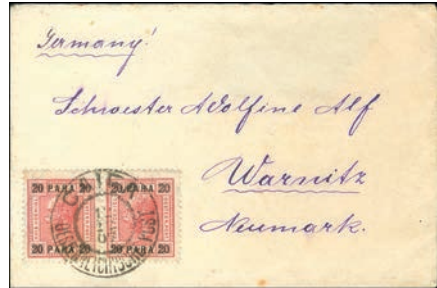 Germany!
Schwester Adolfine Alf
Warnitz
Neumark.
20 PARA 20 20 PARA 20
20 PARA 20 20 PARA 20